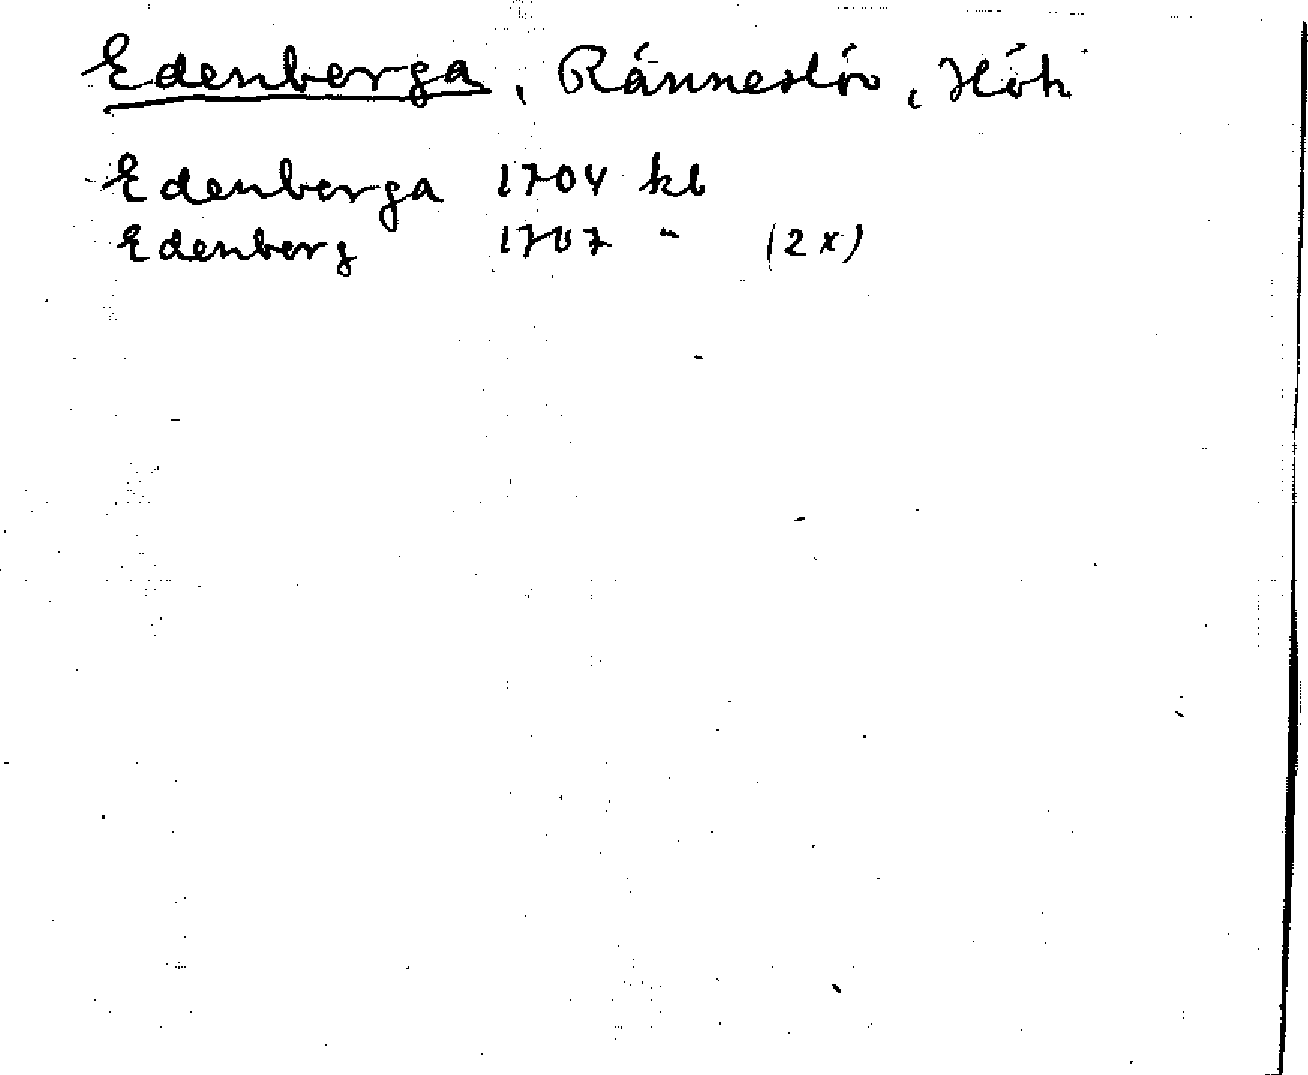 Edenberga, Ränneslöv, Höh
Edenberga 1704 kb
Edenberg 1707 " (2x)